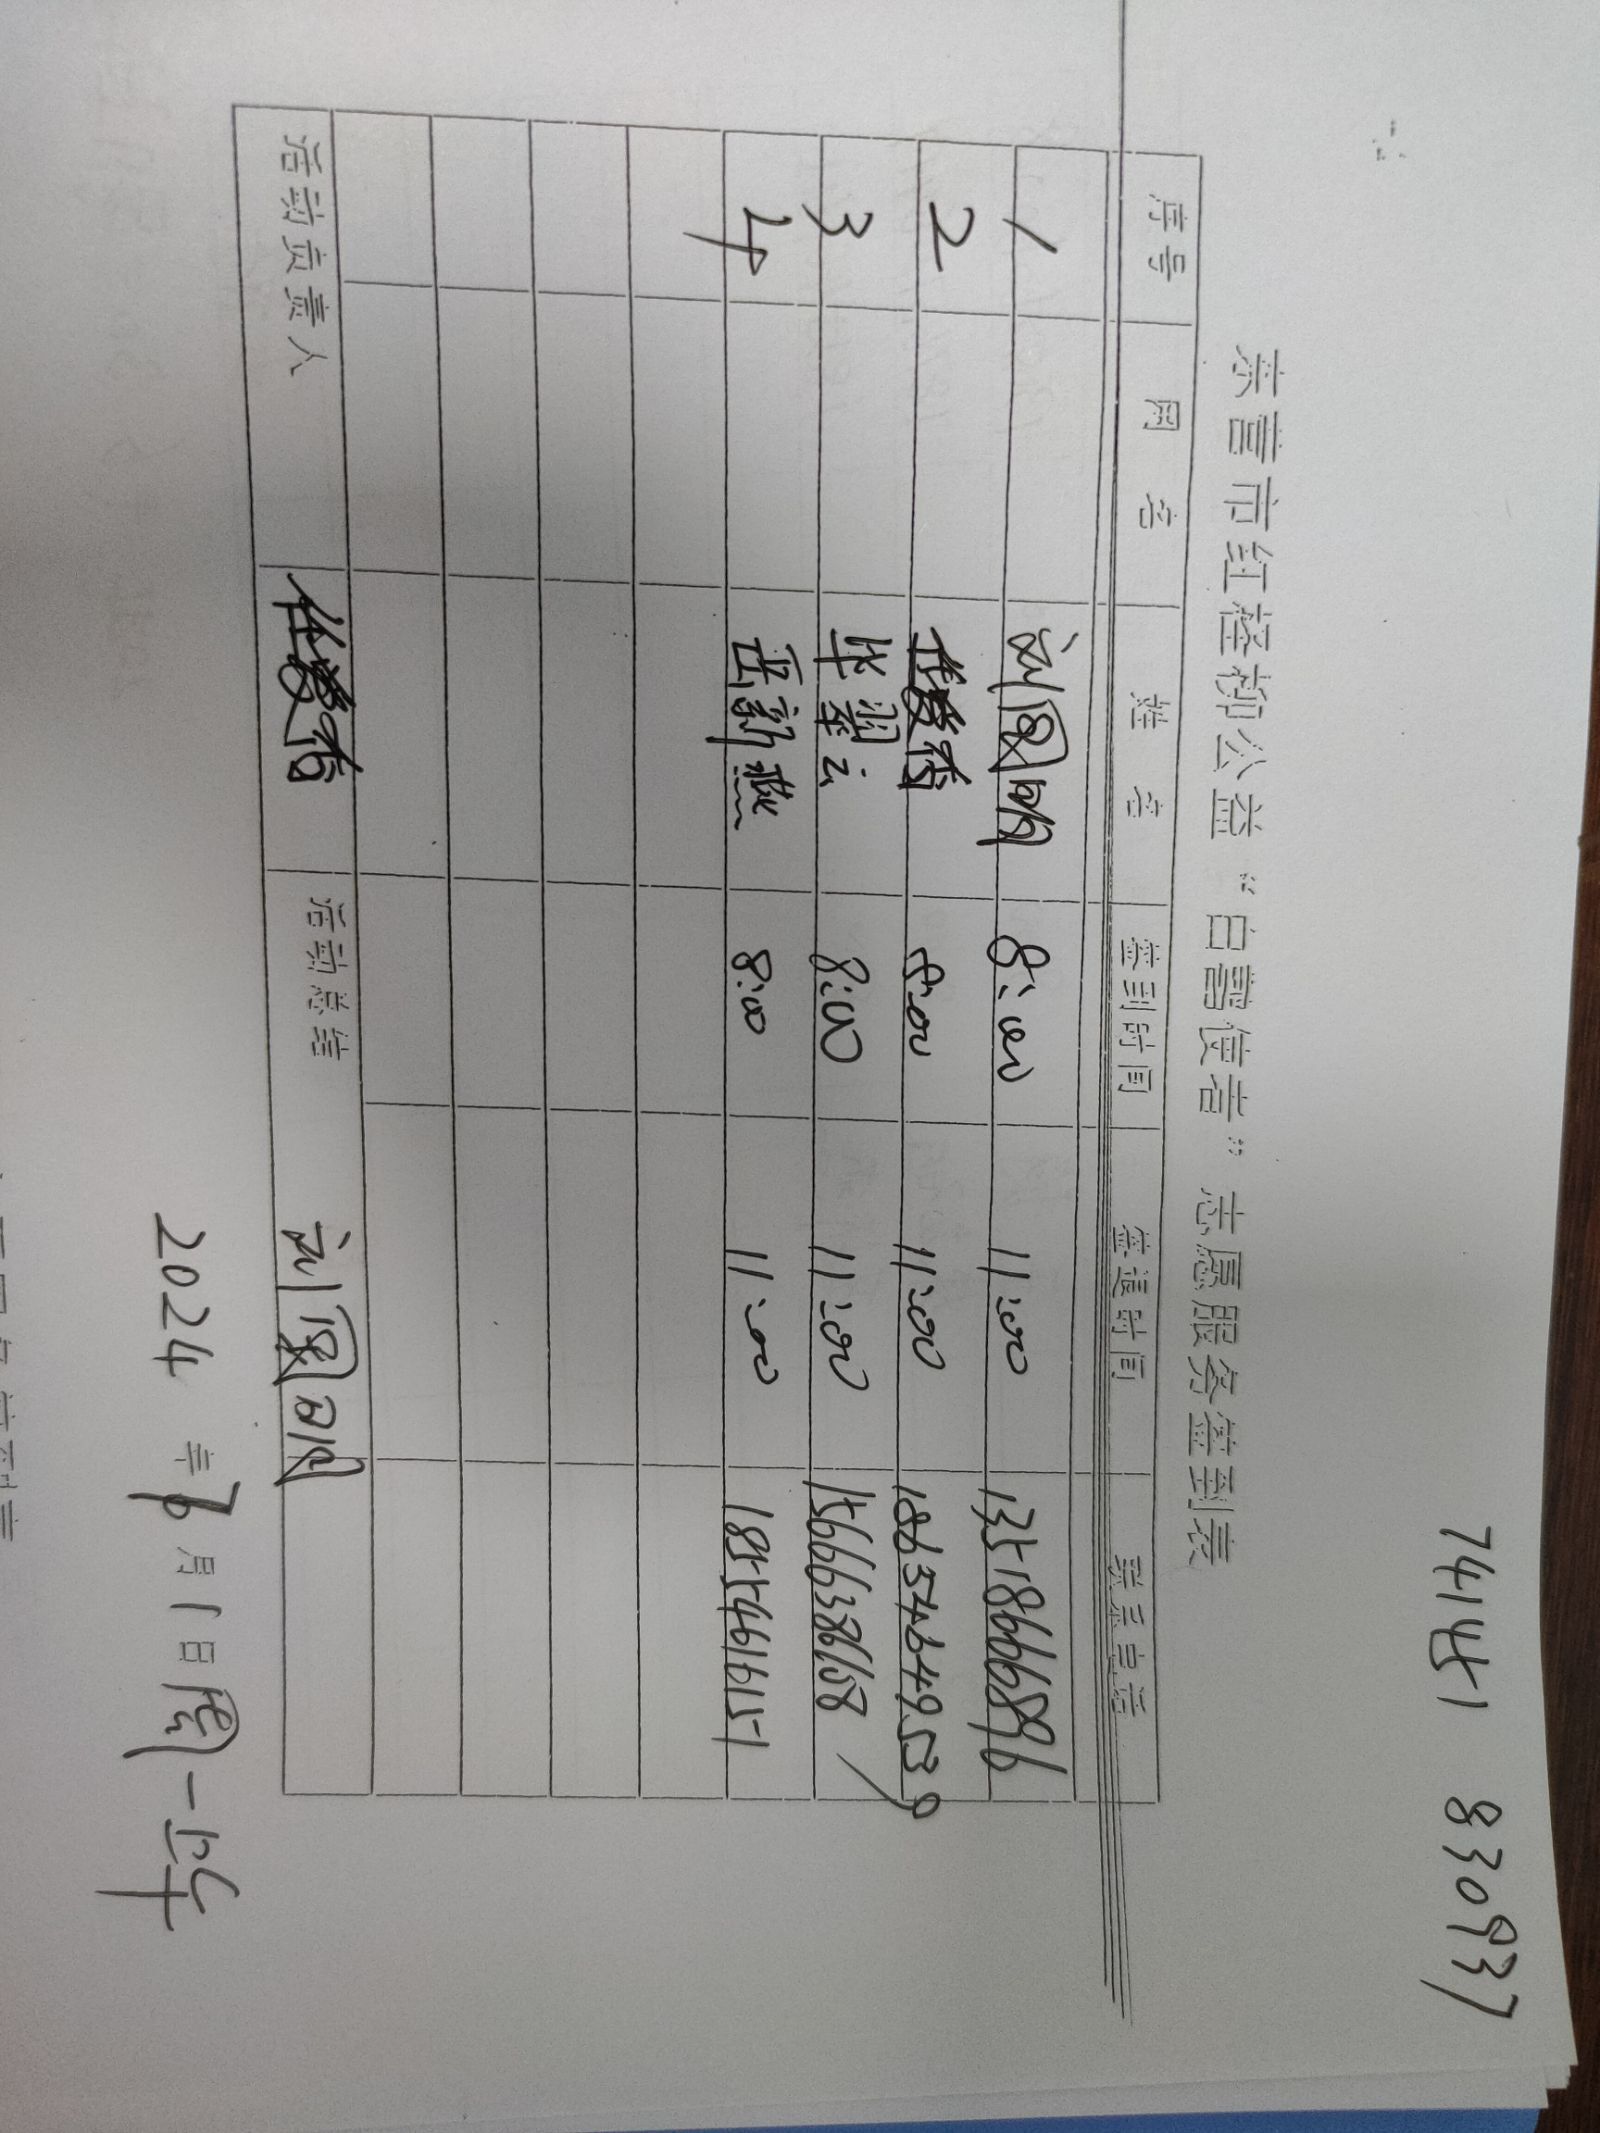 74151 830937
东营市红柽柳公益“白鹭使者”志愿服务签到表
序号 网名 姓名 签到时间 签退时间 联系电话
1 刘国明 8:00 11:00 13518666896
2 8:00 11:00 18654649539
3 毕翠云 8:00 11:00 15666386168
4 岳新燕 8:00 11:00 18554616151
活动负责人 活动总结 刘国明
2024年7月1日周一上午